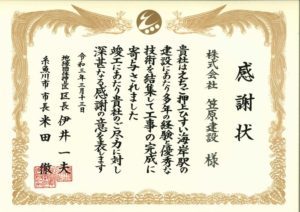 感謝状
株式会社 笠原建設 様
貴社はえちご押上ひすい海岸駅の
建設にあたり多年の経験と優秀な
技術を結集して工事の完成に
寄与されました
竣工にあたり貴社のご尽力に対し
深甚なる感謝の意を表します
令和三年三月十三日
区長 伊井一夫
糸魚川市 市長 米田徹